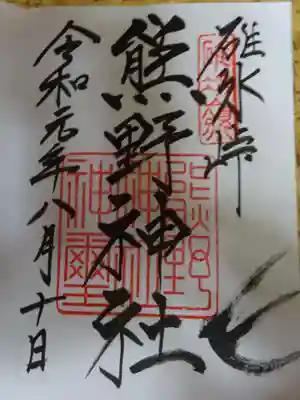 碓氷峠
熊野神社
令和元年八月十日